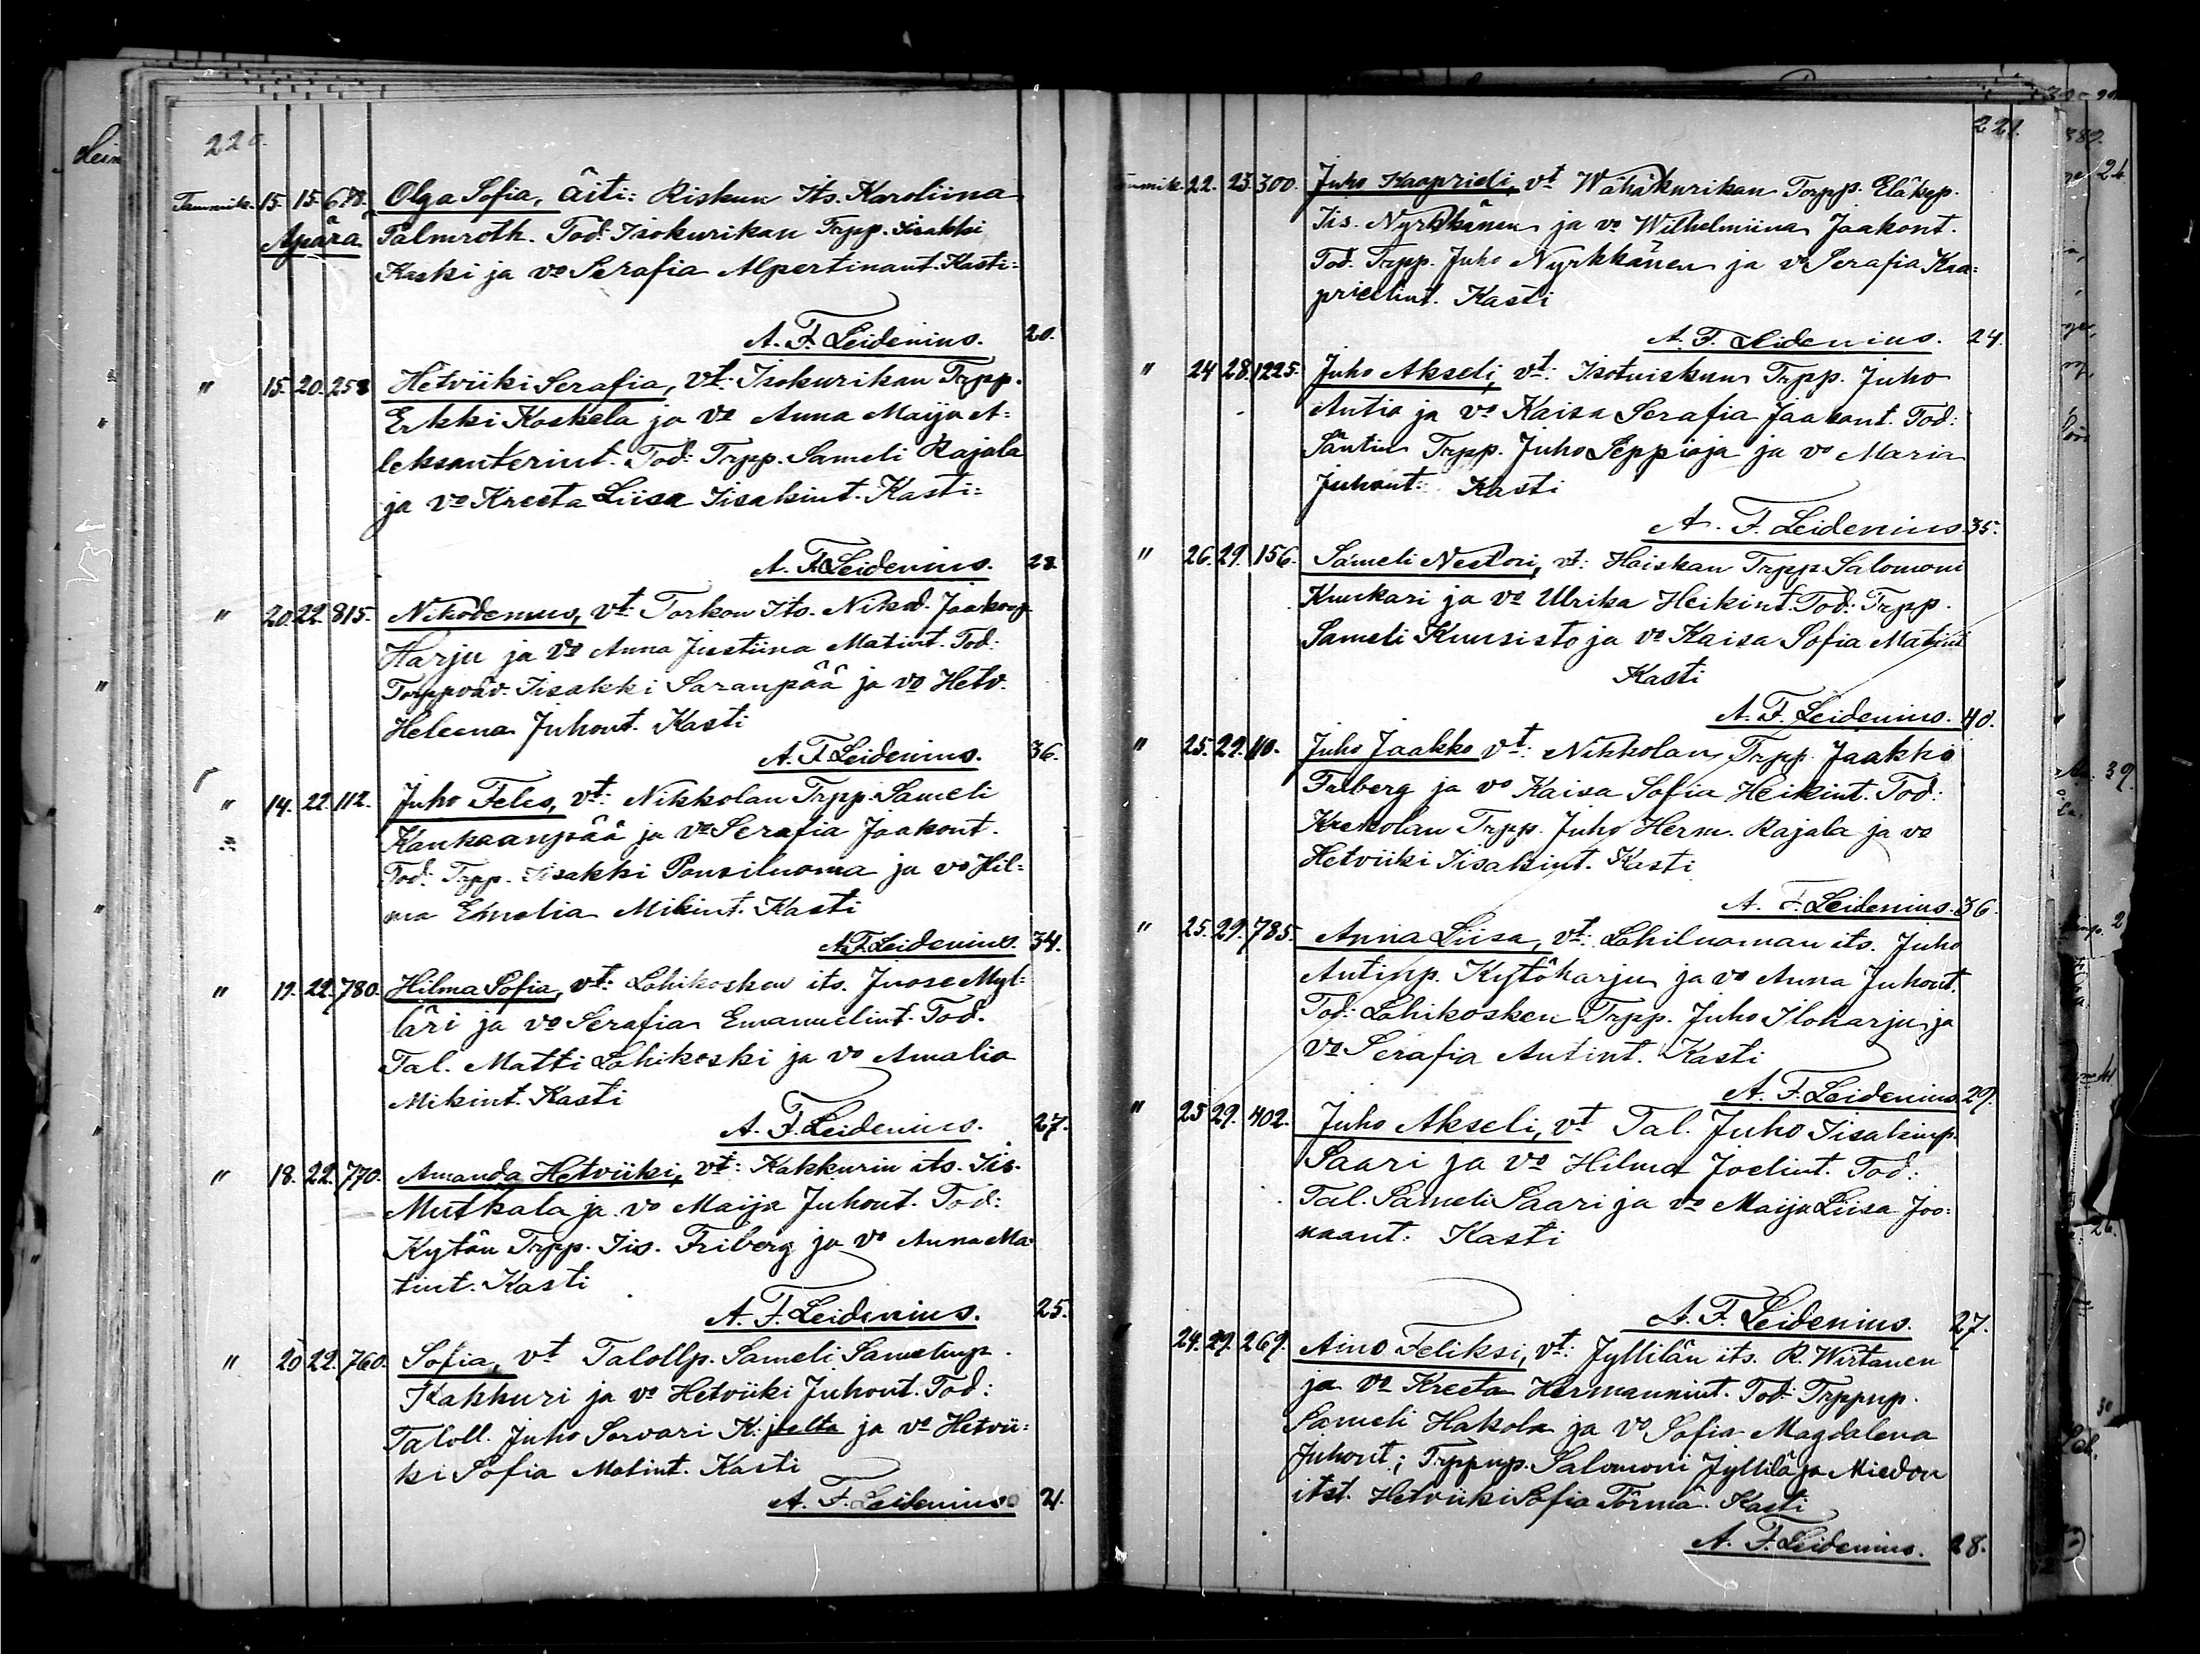 220.
Tammik. 15. 15. 678. Olga Sofia, äiti: Riskun Its. Karoliina
Äpärä Palmroth. Tod: Isokurikan Trpp. Iisakki
Kaski ja vo Serafia Alpertinant. Kasti:
A. F. Leidenius. 20.
" 15. 20. 258 Hetviiki Serafia, vt: Isokurikan Trpp.
Erkki Koskela ja vo Anna Maija A-
leksanterint. Tod: Trpp. Sameli Rajala
ja vo Kreeta Liisa Iisakint. Kasti:
A. F. Leidenius. 28.
" 20. 22. 815. Nikodemus, vt: Torkon Its. Nikod. Jaakonp.
Harju ja vo Anna Justiina Matint. Tod.
Torppoav. Iisakki Saranpää ja vo Hetv.
Heleena Juhont. Kasti
A. F. Leidenius. 36.
" 14. 22. 112. Juho Feles, vt: Nikkolan Trpp. Sameli
Kankaanpää ja vo Serafia Jaakont.
Tod: Trpp. Iisakki Ponsiluoma ja vo Hil-
ma Emelia Mikint. Kasti
A. F. Leidenius. 34.
" 19. 22. 780. Hilma Sofia, vt: Lohikosken its. Juose Myl-
läri ja vo Serafia Emanuelint. Tod.
Tal. Matti Lohikoski ja vo Amalia
Mikint. Kasti
A. F. Leidenius. 27.
" 18. 22. 770. Amanda Hetviiki, vt: Kakkurin its. Iis.
Mutkala ja vo Maija Juhont. Tod:
Kytön Trpp. Iis. Friberg ja vo Anna Ma-
tint. Kasti
A. F. Leidenius. 25.
" 20 22. 760. Sofia, vt Talollp. Sameli Samelinp.
Kakkuri ja vo Hetviiki Juhont. Tod:
Taloll. Juho Sorvari K: ja vo Hetvii-
ki Sofia Matint. Kasti
A. F. Leidenius 21.
221.
22. 23. 300. Juho Kaaprieli, vt Wähäkurikan Torpp. Eläkep.
Iis. Nyrkkänen ja vo Wilhelmiina Jaakont.
Tod: Trpp. Juho Nyrkkänen ja vo Serafia Kaa-
prielint. Kasti
A. F. Leidenius. 24.
" 24 28. 1225. Juho Akseli, vt: Isotuiskun Trpp. Juho
Antia ja vo Kaisa Serafia Jaakont. Tod:
Säntin Trpp. Juho Seppioja ja vo Maria
Juhont: Kasti
A. F. Leidenius 35.
" 26. 29. 156. Sameli Nestori, vt: Haiskan Trpp. Salomoni
Kuukari ja vo Ulrika Heikint. Tod: Trpp.
Sameli Kuusisto ja vo Kaisa Sofia Matint
Kasti
A. F. Leidenius. 40.
" 25. 29. 40. Juho Jaakko vt: Nikkolan Trpp. Jaakko
Friberg ja vo Kaisa Sofia Heikint. Tod:
Krekolan Trpp. Juho Herm. Rajala ja vo
Hetviiki Iisakint. Kasti
A. F. Leidenius. 36.
" 25. 29. 785. Anna Liisa, vt: Lohiluoman its. Juho
Antinp. Kytöharju ja vo Anna Juhont.
Tod: Lohikosken Trpp. Juho Iloharju ja
vo Serafia Antint. Kasti
A. F. Leidenius 29.
" 25 29. 402. Juho Akseli, vt Tal. Juho Iisakinp.
Saari ja vo Hilma Joelint. Tod:
Tal. Sameli Saari ja vo Maija Liisa Joo-
naant. Kasti
A. F. Leidenius. 27.
24. 29. 269. Aino Feliksi, vt: Jyllilän its. R. Wirtanen
ja vo Kreeta Hermannint. Tod: Trppnp.
Sameli Hakola ja vo Sofia Magdalena
Juhont; Trppnp. Salomoni Jyllilä ja Miedon
itst. Hetviiki Sofia Törmä. Kasti
A. F. Leidenius. 28.